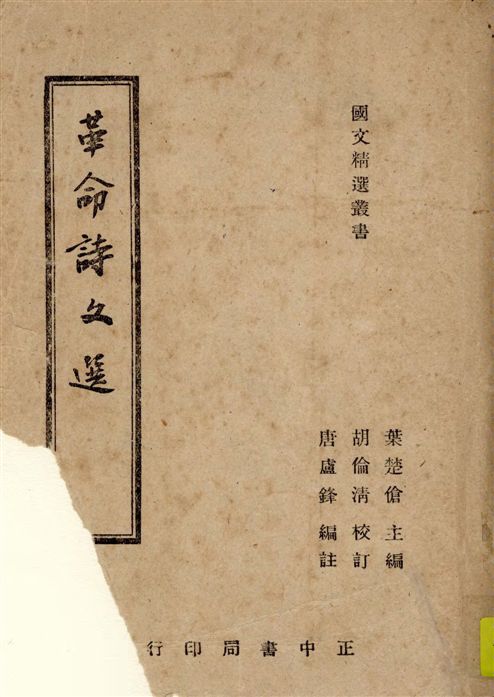 國文精選叢書
葉楚傖 主編
胡倫清 校訂
唐盧鋒 編註
革命詩文選
正中書局印行